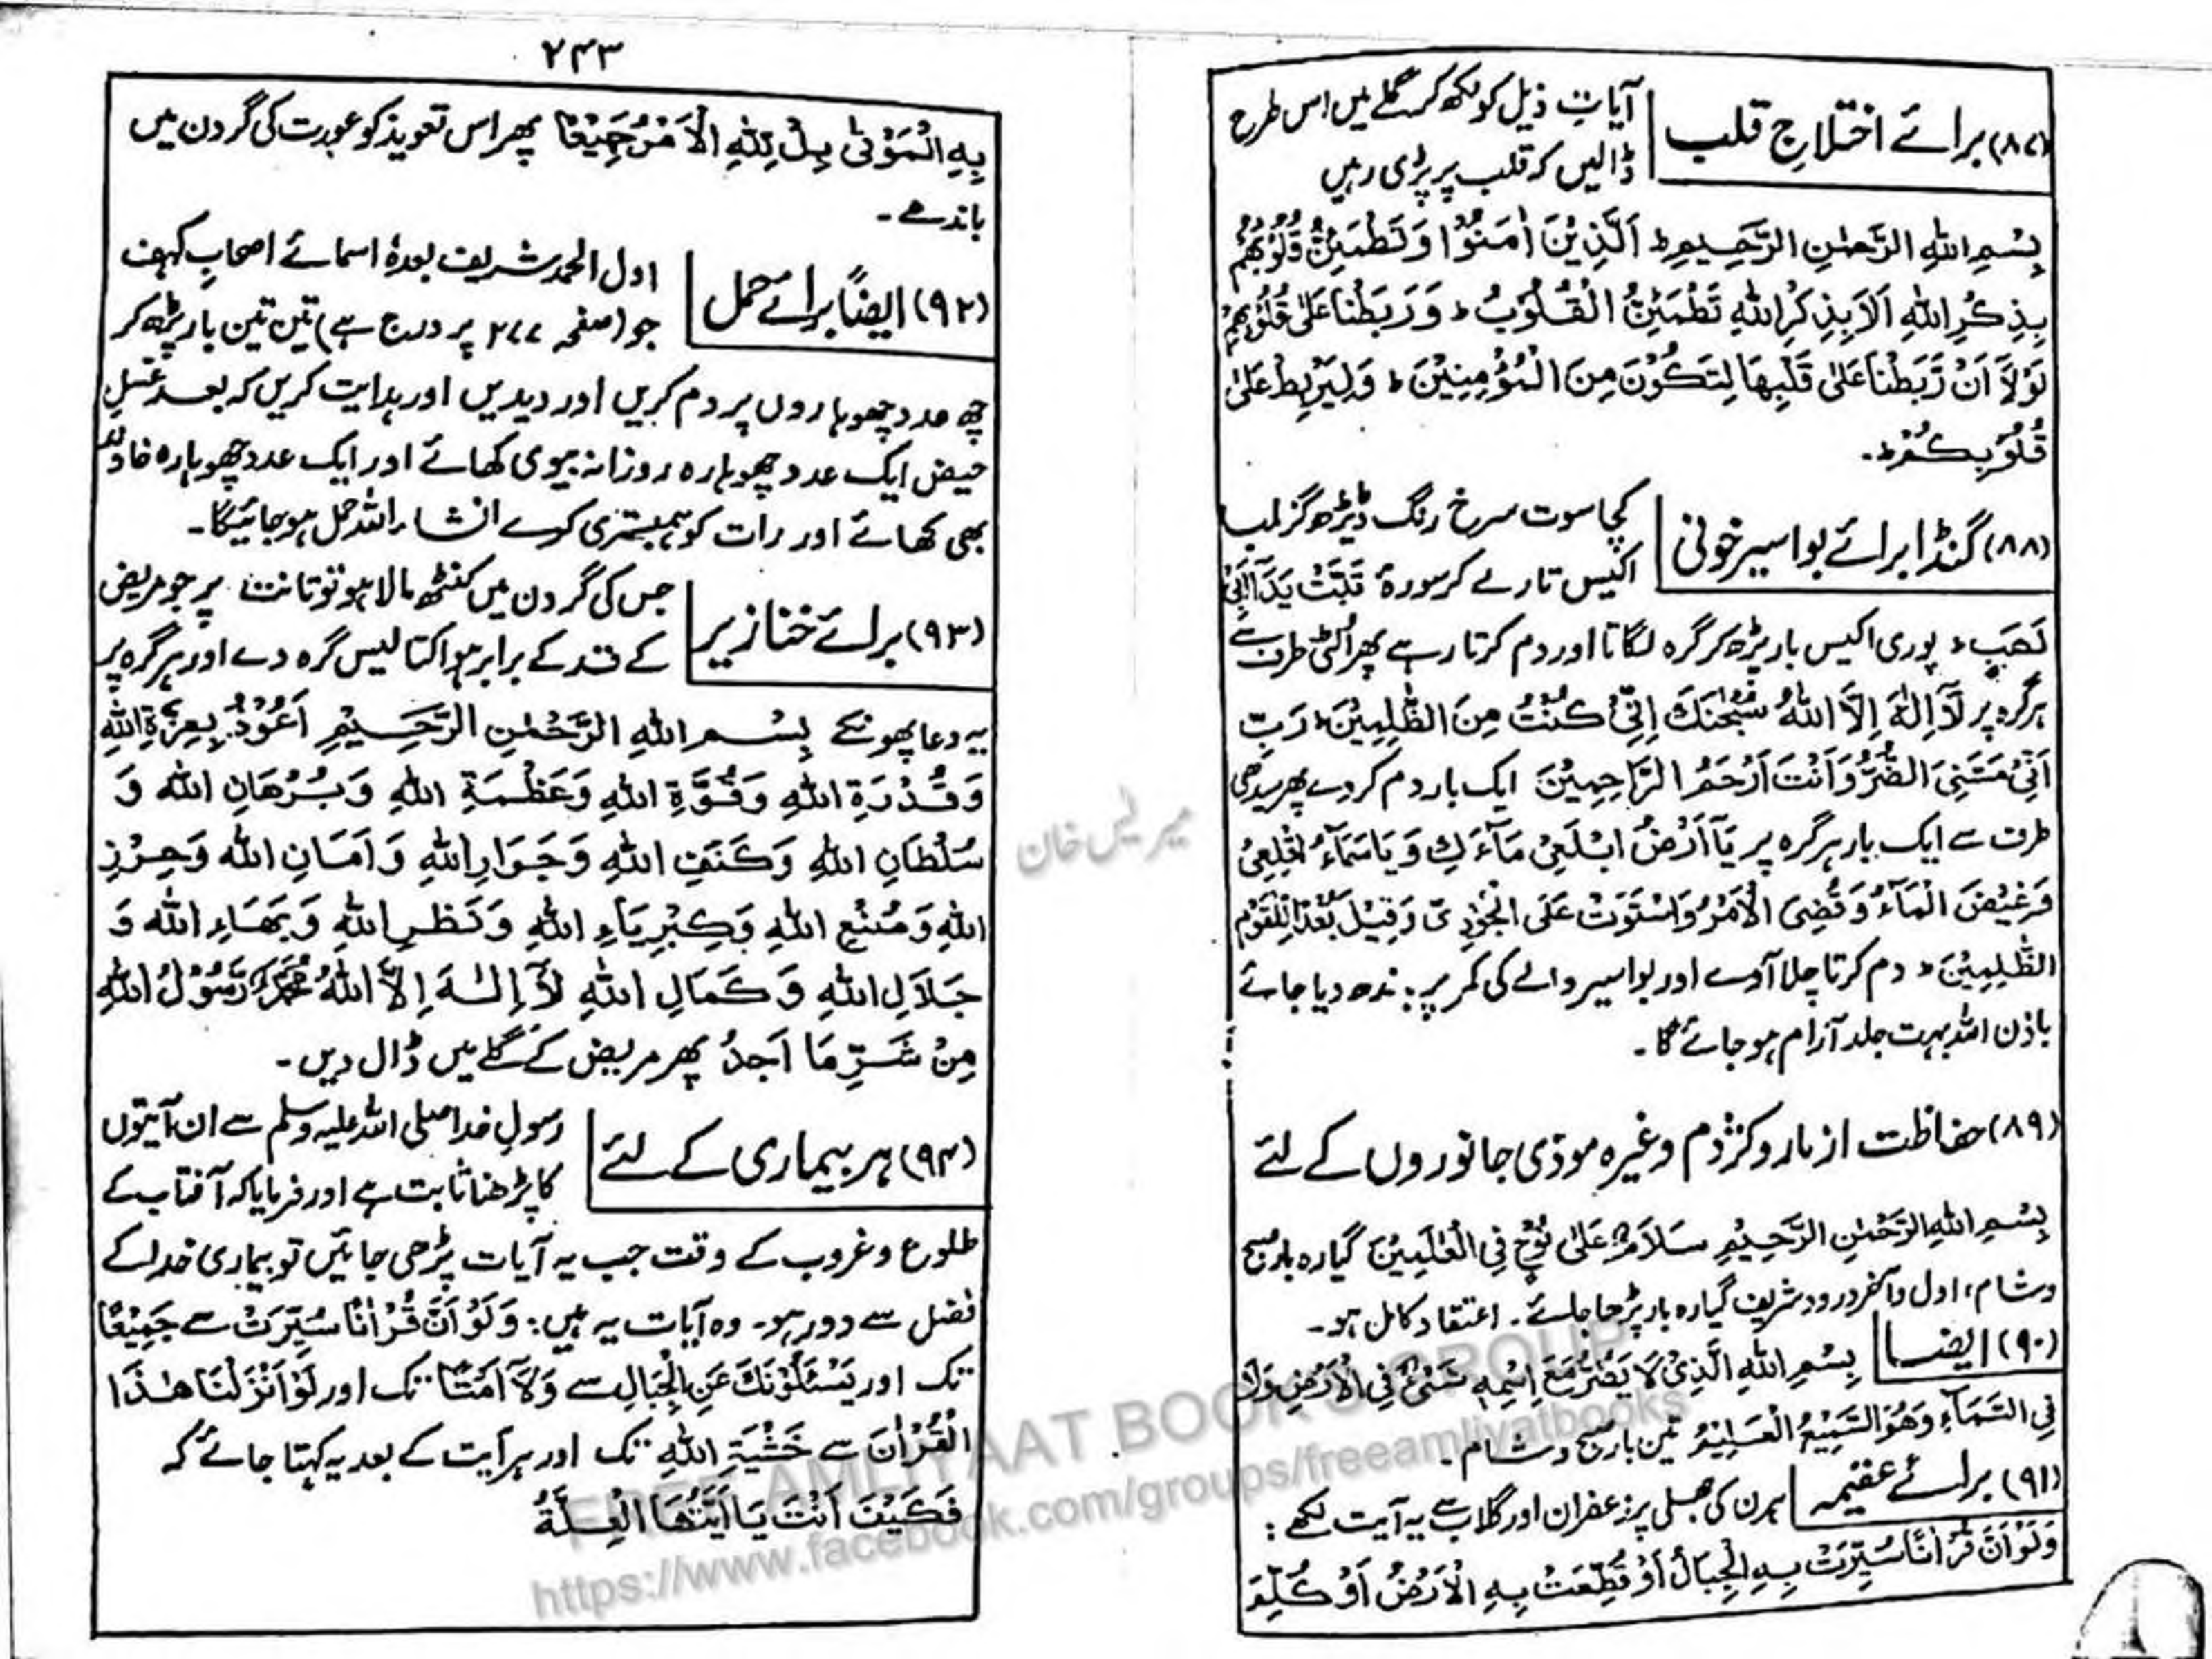 (۸۷) برائے اختلاجِ قلب
آیاتِ ذیل کو لکھ کر گلے میں اس طرح
ڈالیں کہ قلب پر پڑی رہیں
بِسْمِ اللهِ الرَّحْمٰنِ الرَّحِيْمِ ط اَلَّذِيْنَ اٰمَنُوْا وَتَطْمَئِنُّ قُلُوْبُهُمْ
بِذِكْرِ اللهِ اَلَا بِذِكْرِ اللهِ تَطْمَئِنُّ الْقُلُوْبُ ط وَرَبَطْنَا عَلٰى قُلُوْبِهِمْ
لَوْلَا اَنْ رَّبَطْنَا عَلٰى قَلْبِهَا لِتَكُوْنَ مِنَ الْمُؤْمِنِيْنَ ط وَلِيَرْبِطَ عَلٰى
قُلُوْبِكُمْ ط۔
(۸۸) گنڈا برائے بواسیر خونی
کچا سوت سرخ رنگ ڈیڑھ گز لمبا
اکیس تار لے کر سورۂ تَبَّتْ يَدَآ اَبِيْ
لَهَبٍ ط پوری اکیس بار پڑھ کر گرہ لگاتا اور دم کرتا رہے پھر اُلٹی طرف سے
ہر گرہ پر لَآ اِلٰهَ اِلَّا اللهُ سُبْحٰنَكَ اِنِّيْ كُنْتُ مِنَ الظّٰلِمِيْنَ ط رَبِّ
اَنِّيْ مَسَّنِيَ الضُّرُّ وَاَنْتَ اَرْحَمُ الرَّاحِمِيْنَ ایک بار دم کردے پھر سیدھی
طرف سے ایک بار ہر گرہ پر يَآ اَرْضُ ابْلَعِيْ مَآءَكِ وَيَا سَمَآءُ اَقْلِعِيْ
وَغِيْضَ الْمَآءُ وَقُضِيَ الْاَمْرُ وَاسْتَوَتْ عَلَى الْجُوْدِيِّ وَقِيْلَ بُعْدًا لِّلْقَوْمِ
الظّٰلِمِيْنَ ط دم کرتا چلا آوے اور بواسیر والے کی کمر پر بندھ دیا جائے
باذن اللہ بہت جلد آرام ہو جائے گا۔
(۸۹) حفاظت از مار و کژدم وغیرہ موذی جانوروں کے لئے
بِسْمِ اللهِ الرَّحْمٰنِ الرَّحِيْمِ سَلَامٌ عَلٰى نُوْحٍ فِي الْعٰلَمِيْنَ گیارہ بار صبح
وشام، اول وآخر درود شریف گیارہ بار پڑھا جائے۔ اعتقاد کامل ہو۔
(۹۰) ایضا
بِسْمِ اللهِ الَّذِيْ لَا يَضُرُّ مَعَ اسْمِهٖ شَيْءٌ فِي الْاَرْضِ وَلَا
فِي السَّمَآءِ وَهُوَ السَّمِيْعُ الْعَلِيْمُ تین بار صبح وشام۔
(۹۱) برائے عقیمہ
ہرن کی جھلی پر زعفران اور گلاب سے یہ آیت لکھے:
وَلَوْ اَنَّ قُرْاٰنًا سُيِّرَتْ بِهِ الْجِبَالُ اَوْ قُطِّعَتْ بِهِ الْاَرْضُ اَوْ كُلِّمَ
۲۴۳
بِهِ الْمَوْتٰى بَلْ لِّلّٰهِ الْاَمْرُ جَمِيْعًا پھر اس تعویذ کو عورت کی گردن میں
باندھے۔
(۹۲) ایضاً برائے حمل
اول الحمد شریف بعدہٗ اسمائے اصحابِ کہف
جو (صفحہ ۲۷۷ پر درج ہے) تین تین بار پڑھ کر
چھ عدد چھوہاروں پر دم کریں اور دیدیں اور ہدایت کریں کہ بعد غسلِ
حیض ایک عدد چھوہارہ روزانہ بیوی کھائے اور ایک عدد چھوہارہ خاوند
بھی کھائے اور رات کو ہمبستری کرے انشاء اللہ حمل ہو جائیگا۔
(۹۳) برائے خنازیر
جس کی گردن میں کنٹھ مالا ہو تو تانت پر جو مریض
کے قد کے برابر ہو اکتالیس گرہ دے اور ہر گرہ پر
یہ دعا پھونکے بِسْمِ اللهِ الرَّحْمٰنِ الرَّحِيْمِ اَعُوْذُ بِعِزَّةِ اللهِ
وَقُدْرَةِ اللهِ وَقُوَّةِ اللهِ وَعَظْمَةِ اللهِ وَبُرْهَانِ اللهِ وَ
سُلْطَانِ اللهِ وَكَنَفِ اللهِ وَجَوَارِ اللهِ وَاَمَانِ اللهِ وَحِرْزِ
اللهِ وَصُنْعِ اللهِ وَكِبْرِيَاءِ اللهِ وَنَظَرِ اللهِ وَبَهَاءِ اللهِ وَ
جَلَالِ اللهِ وَكَمَالِ اللهِ لَآ اِلٰهَ اِلَّا اللهُ مُحَمَّدٌ رَّسُوْلُ اللهِ
مِنْ شَرِّ مَا اَجِدُ پھر مریض کے گلے میں ڈال دیں۔
(۹۴) ہر بیماری کے لئے
رسولِ خدا صلی اللہ علیہ وسلم سے ان آیتوں
کا پڑھنا ثابت ہے اور فرمایا کہ آفتاب کے
طلوع وغروب کے وقت جب یہ آیات پڑھی جائیں تو بیماری خدا کے
فضل سے دور ہو۔ وہ آیات یہ ہیں: وَلَوْ اَنَّ قُرْاٰنًا سُيِّرَتْ سے جَمِيْعًا
تک اور يَسْئَلُوْنَكَ عَنِ الْجِبَالِ سے وَلَآ اَمْتًا تک اور لَوْ اَنْزَلْنَا هٰذَا
الْقُرْاٰنَ سے خَشْيَةِ اللهِ تک اور ہر آیت کے بعد یہ کہتا جائے کہ
فَكَيْفَ اَنْتَ يَا اَيَّتُهَا الْعِلَّةُ
FREE AMLIYAAT BOOKS GROUP
https://www.facebook.com/groups/freeamliyatbooks